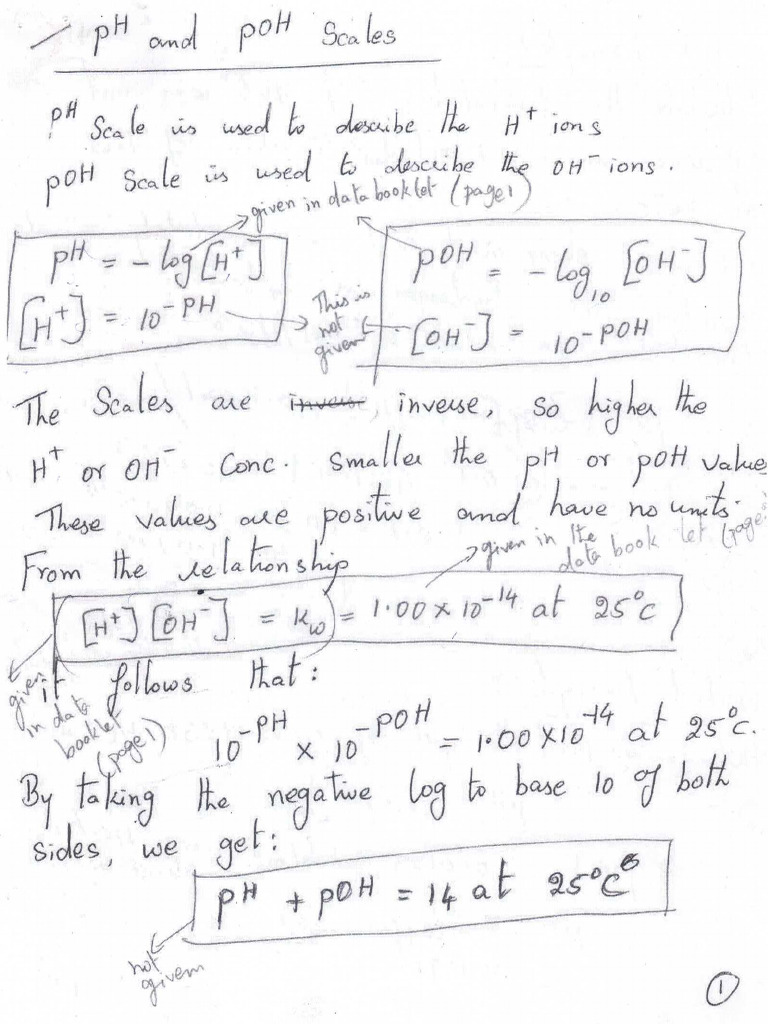 pH and pOH Scales
pH Scale is used to describe the H⁺ ions
pOH Scale is used to describe the OH⁻ ions.
given in data booklet (page 1)
pH = - log [H⁺]
[H⁺] = 10^-PH
This is
not
given
pOH = - log₁₀ [OH⁻]
[OH⁻] = 10^-POH
The Scales are inverse, inverse, so higher the
H⁺ or OH⁻ Conc. smaller the pH or pOH values
These values are positive and have no units.
given in the
data book let (page
From the relationship
[H⁺] [OH⁻] = Kw = 1.00 x 10^-14 at 25°C
given
in data
booklet
(page 1)
it follows that:
10^-PH x 10^-POH = 1.00 X 10^-14 at 25°C.
By taking the negative log to base 10 of both
sides, we get:
pH + pOH = 14 at 25°C
not
given
1